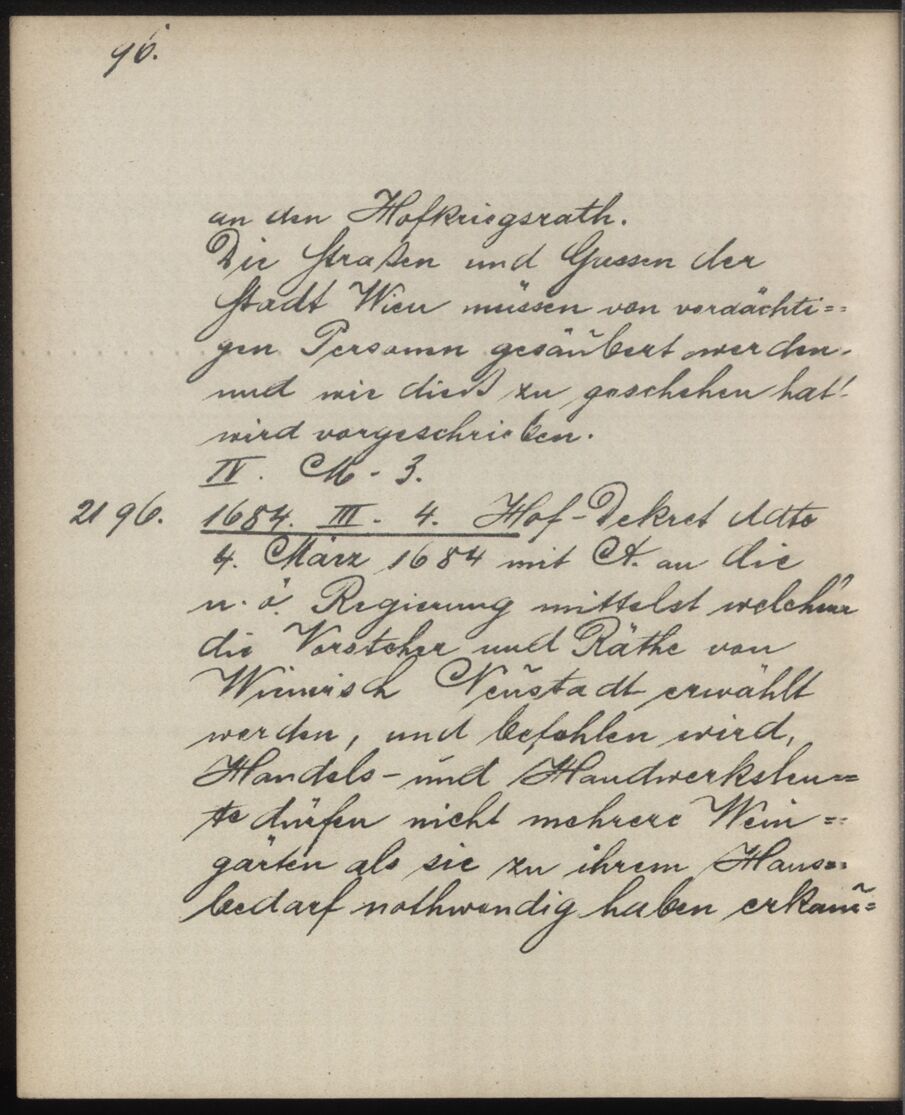 96.
an den Hofkriegsrath.
Die Straßen und Gassen der
Stadt Wien müssen von verdächti=
gen Personen gesäubert werden,
und wie dieß zu geschehen hat!
wird vorgeschrieben.
IV. M - 3.
2196. 1684. III. 4. Hof-Dekret ddto
4. März 1684 mit A. an die
n. ö. Regierung mittelst welchem
die Vorsteher und Räthe von
Wienerisch Neustadt erwählt
werden, und befohlen wird,
Handels- und Handwerksleu=
te dürfen nicht mehrere Wein=
gärten als sie zu ihrem Haus=
bedarf nothwendig haben erkau=